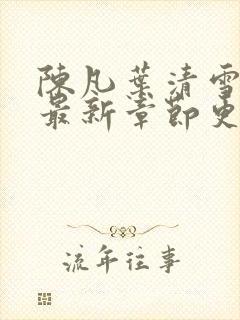 陳凡葉清雪
最新章節更
流年往事